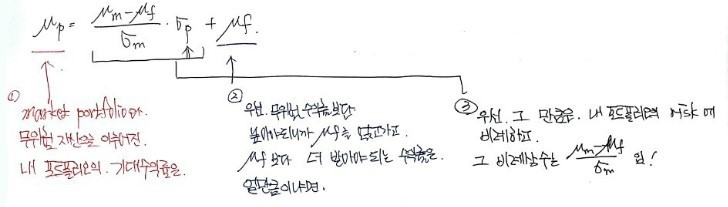 μp = μm-μf / σm · σp + μf.
①
market portfolio와
무위험 자산으로 이루어진
내 포트폴리오의. 기대수익률은.
②
우선. 무위험 수익률보단
높아야되니까 μf를 깔고가고.
μf 보다 더 받아야 되는 수익률은.
얼만큼이냐면.
③
우선. 그 만큼은. 내 포트폴리오의 에
비례하고.
그 비례상수는 μm-μf / σm 임!